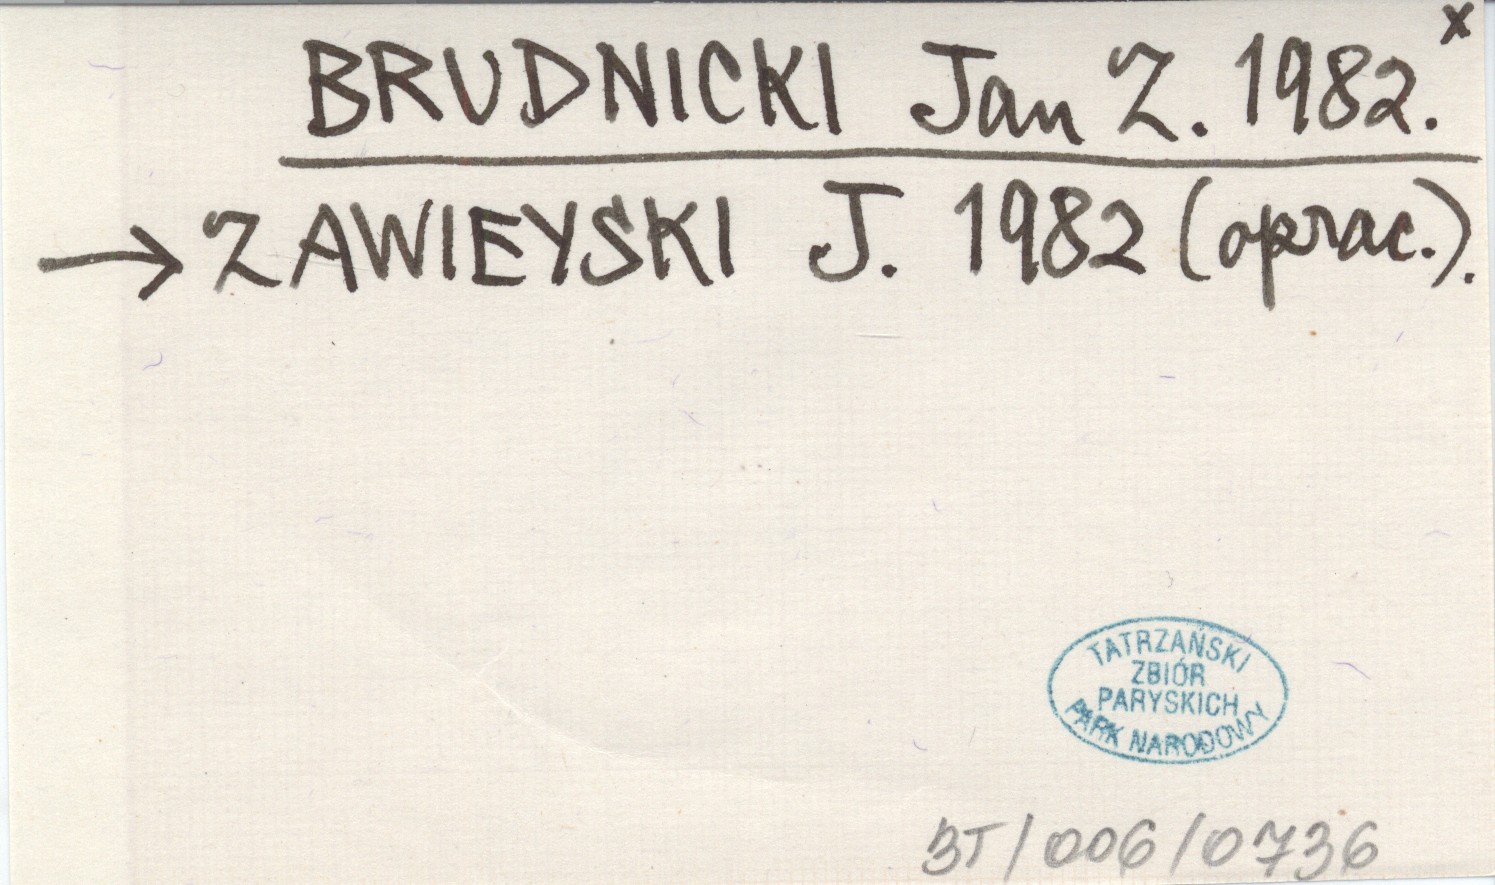 BRUDNICKI Jan Z. 1982. x
→ ZAWIEYSKI J. 1982 (oprac.).
TATRZAŃSKI
ZBIÓR
PARYSKICH
PARK NARODOWY
BT/006/0736